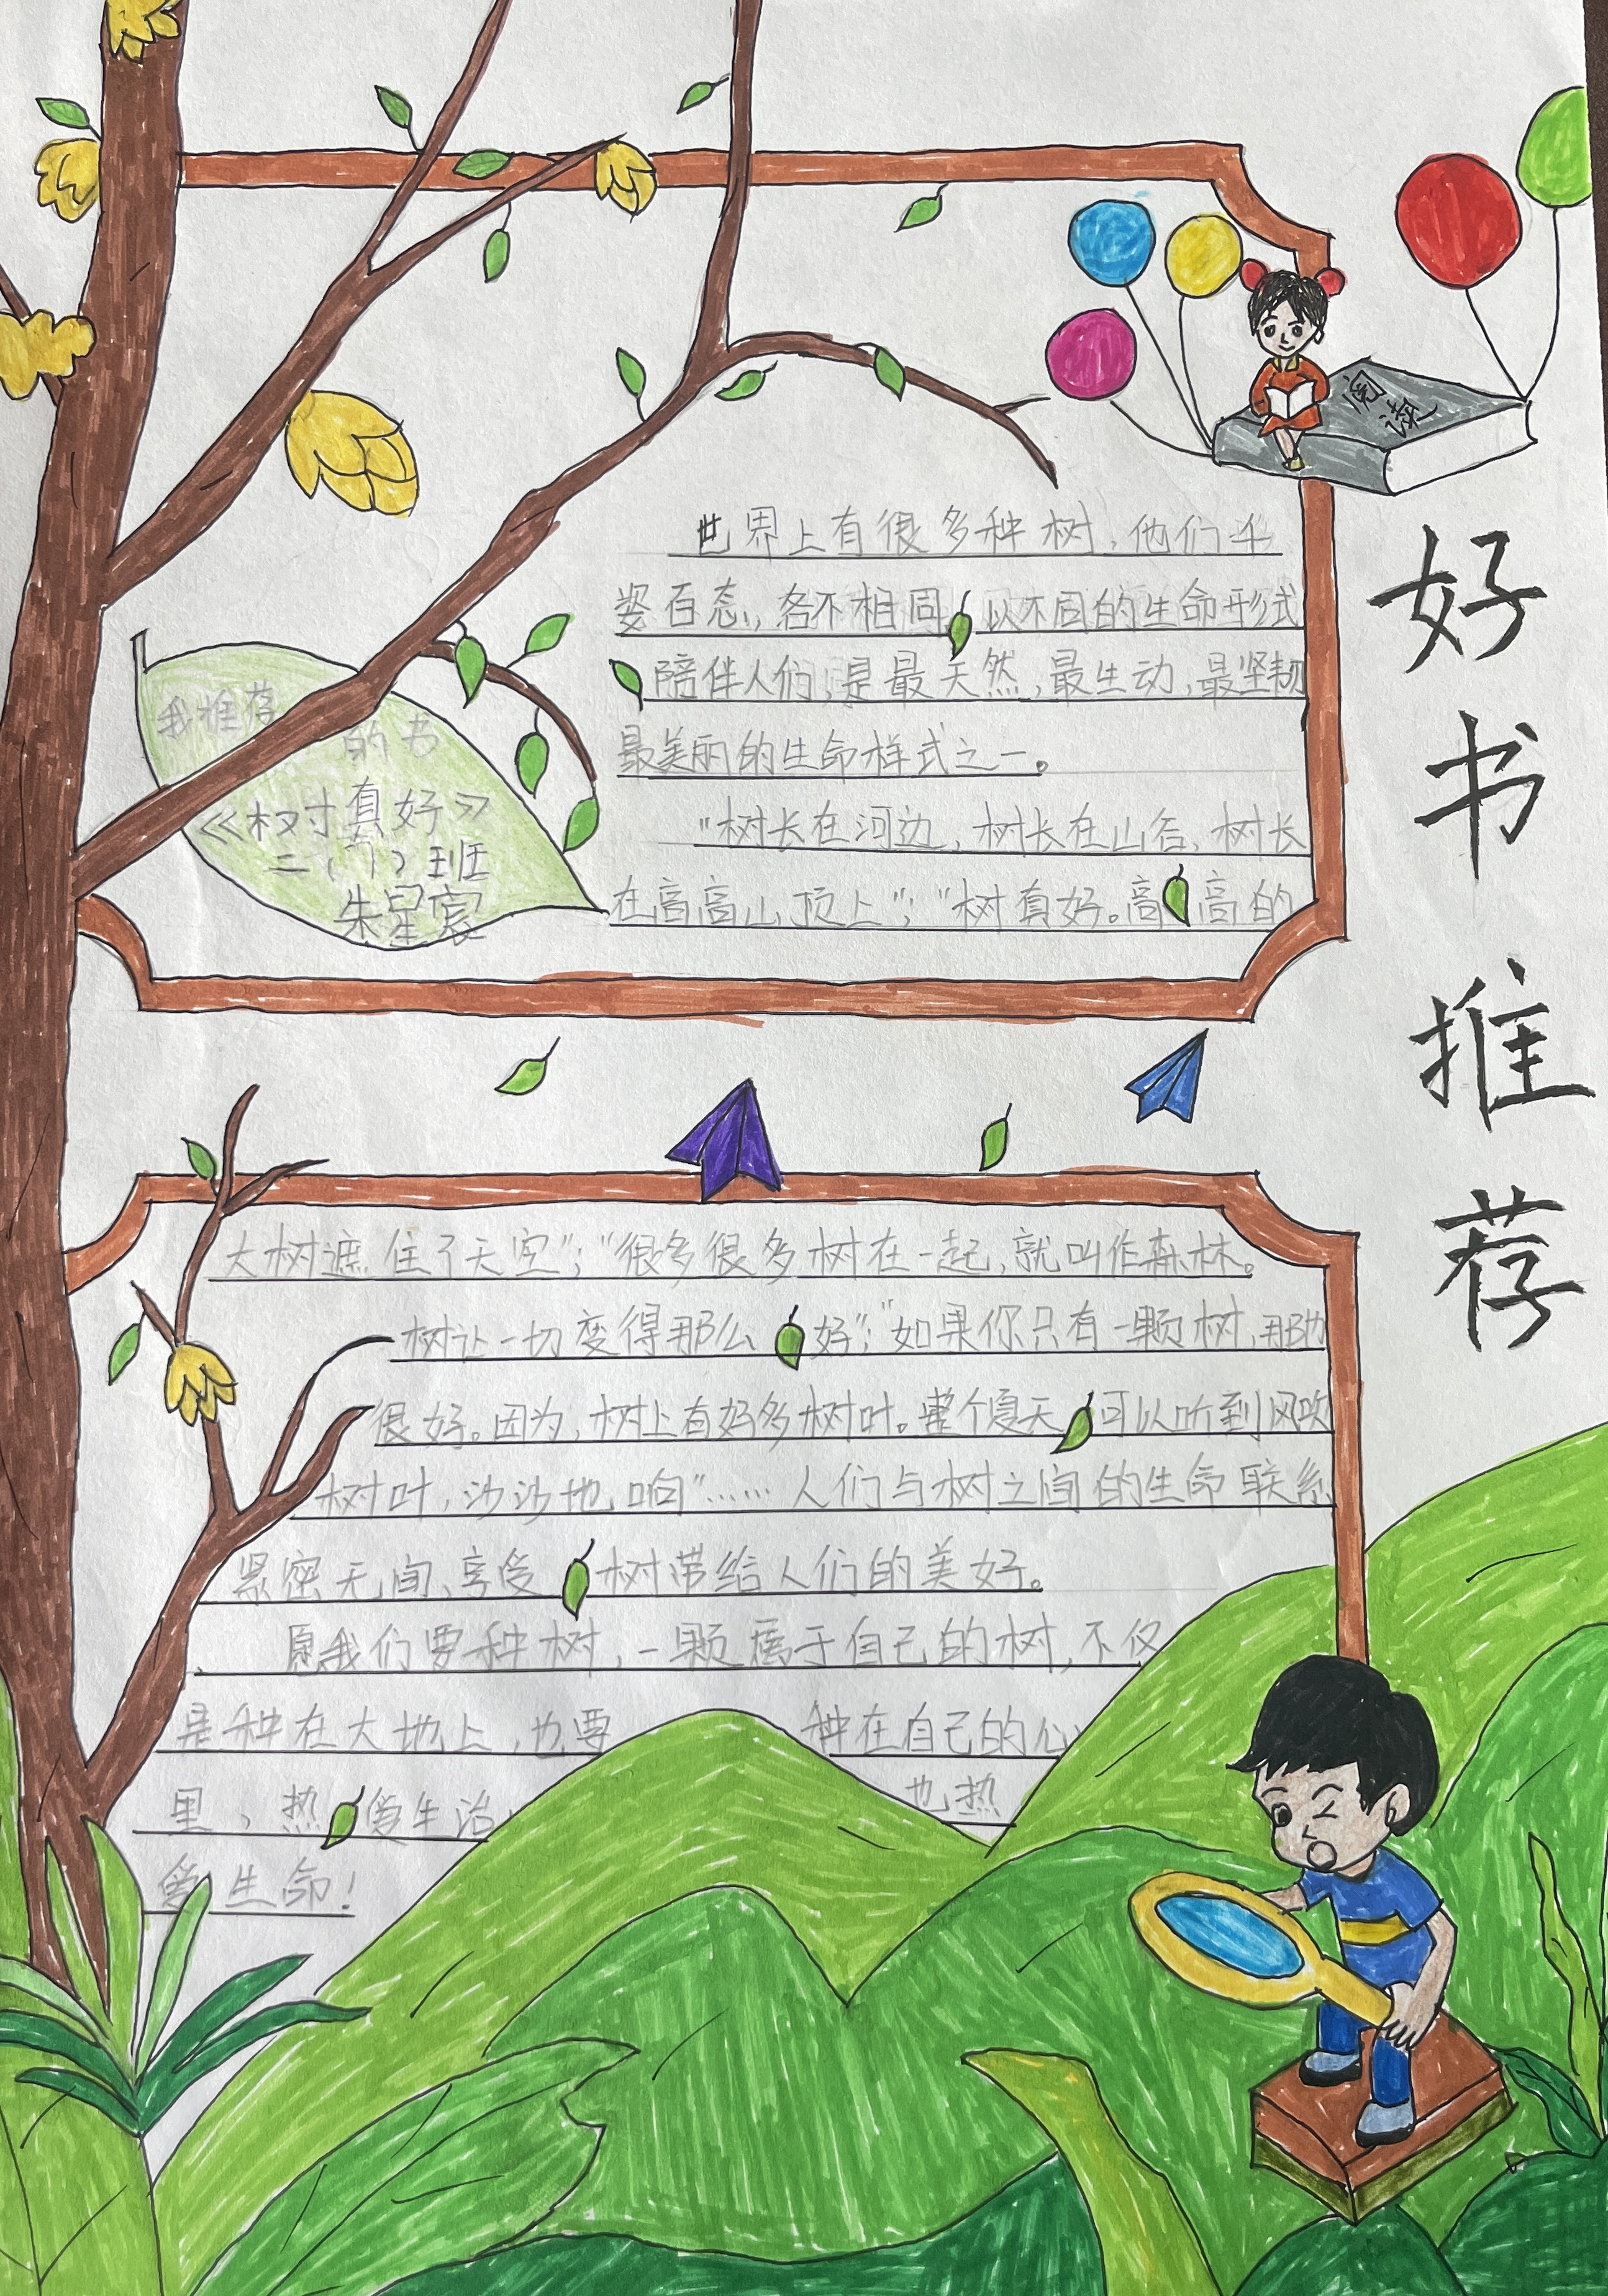 好书推荐
阅读
我推荐
的书
《树真好》
二（1）班
朱星宸
世界上有很多种树，他们千
姿百态，各不相同，以不同的生命形式
陪伴人们，是最天然，最生动，最坚韧
最美丽的生命样式之一。
"树长在河边，树长在山谷，树长
在高高山顶上"；"树真好。高高的
大树遮住了天空"；"很多很多树在一起，就叫作森林。
树让一切变得那么好"；"如果你只有一颗树，那也
很好。因为，树上有好多树叶。整个夏天可以听到风吹
树叶，沙沙地响"……人们与树之间的生命联系
紧密无间、享受树带给人们的美好。
愿我们要种树，一颗属于自己的树，不仅
是种在大地上，也要种在自己的心
里，热爱生活，也热
爱生命！